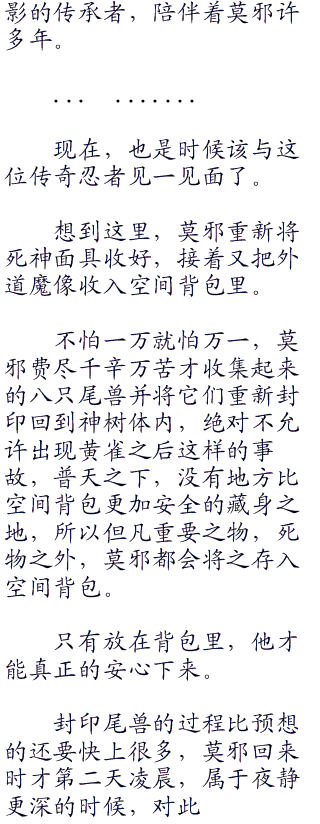 影的传承者，陪伴着莫邪许
多年。
... .......
现在，也是时候该与这
位传奇忍者见一见面了。
想到这里，莫邪重新将
死神面具收好，接着又把外
道魔像收入空间背包里。
不怕一万就怕万一，莫
邪费尽千辛万苦才收集起来
的八只尾兽并将它们重新封
印回到神树体内，绝对不允
许出现黄雀之后这样的事
故，普天之下，没有地方比
空间背包更加安全的藏身之
地，所以但凡重要之物，死
物之外，莫邪都会将之存入
空间背包。
只有放在背包里，他才
能真正的安心下来。
封印尾兽的过程比预想
的还要快上很多，莫邪回来
时才第二天凌晨，属于夜静
更深的时候，对此